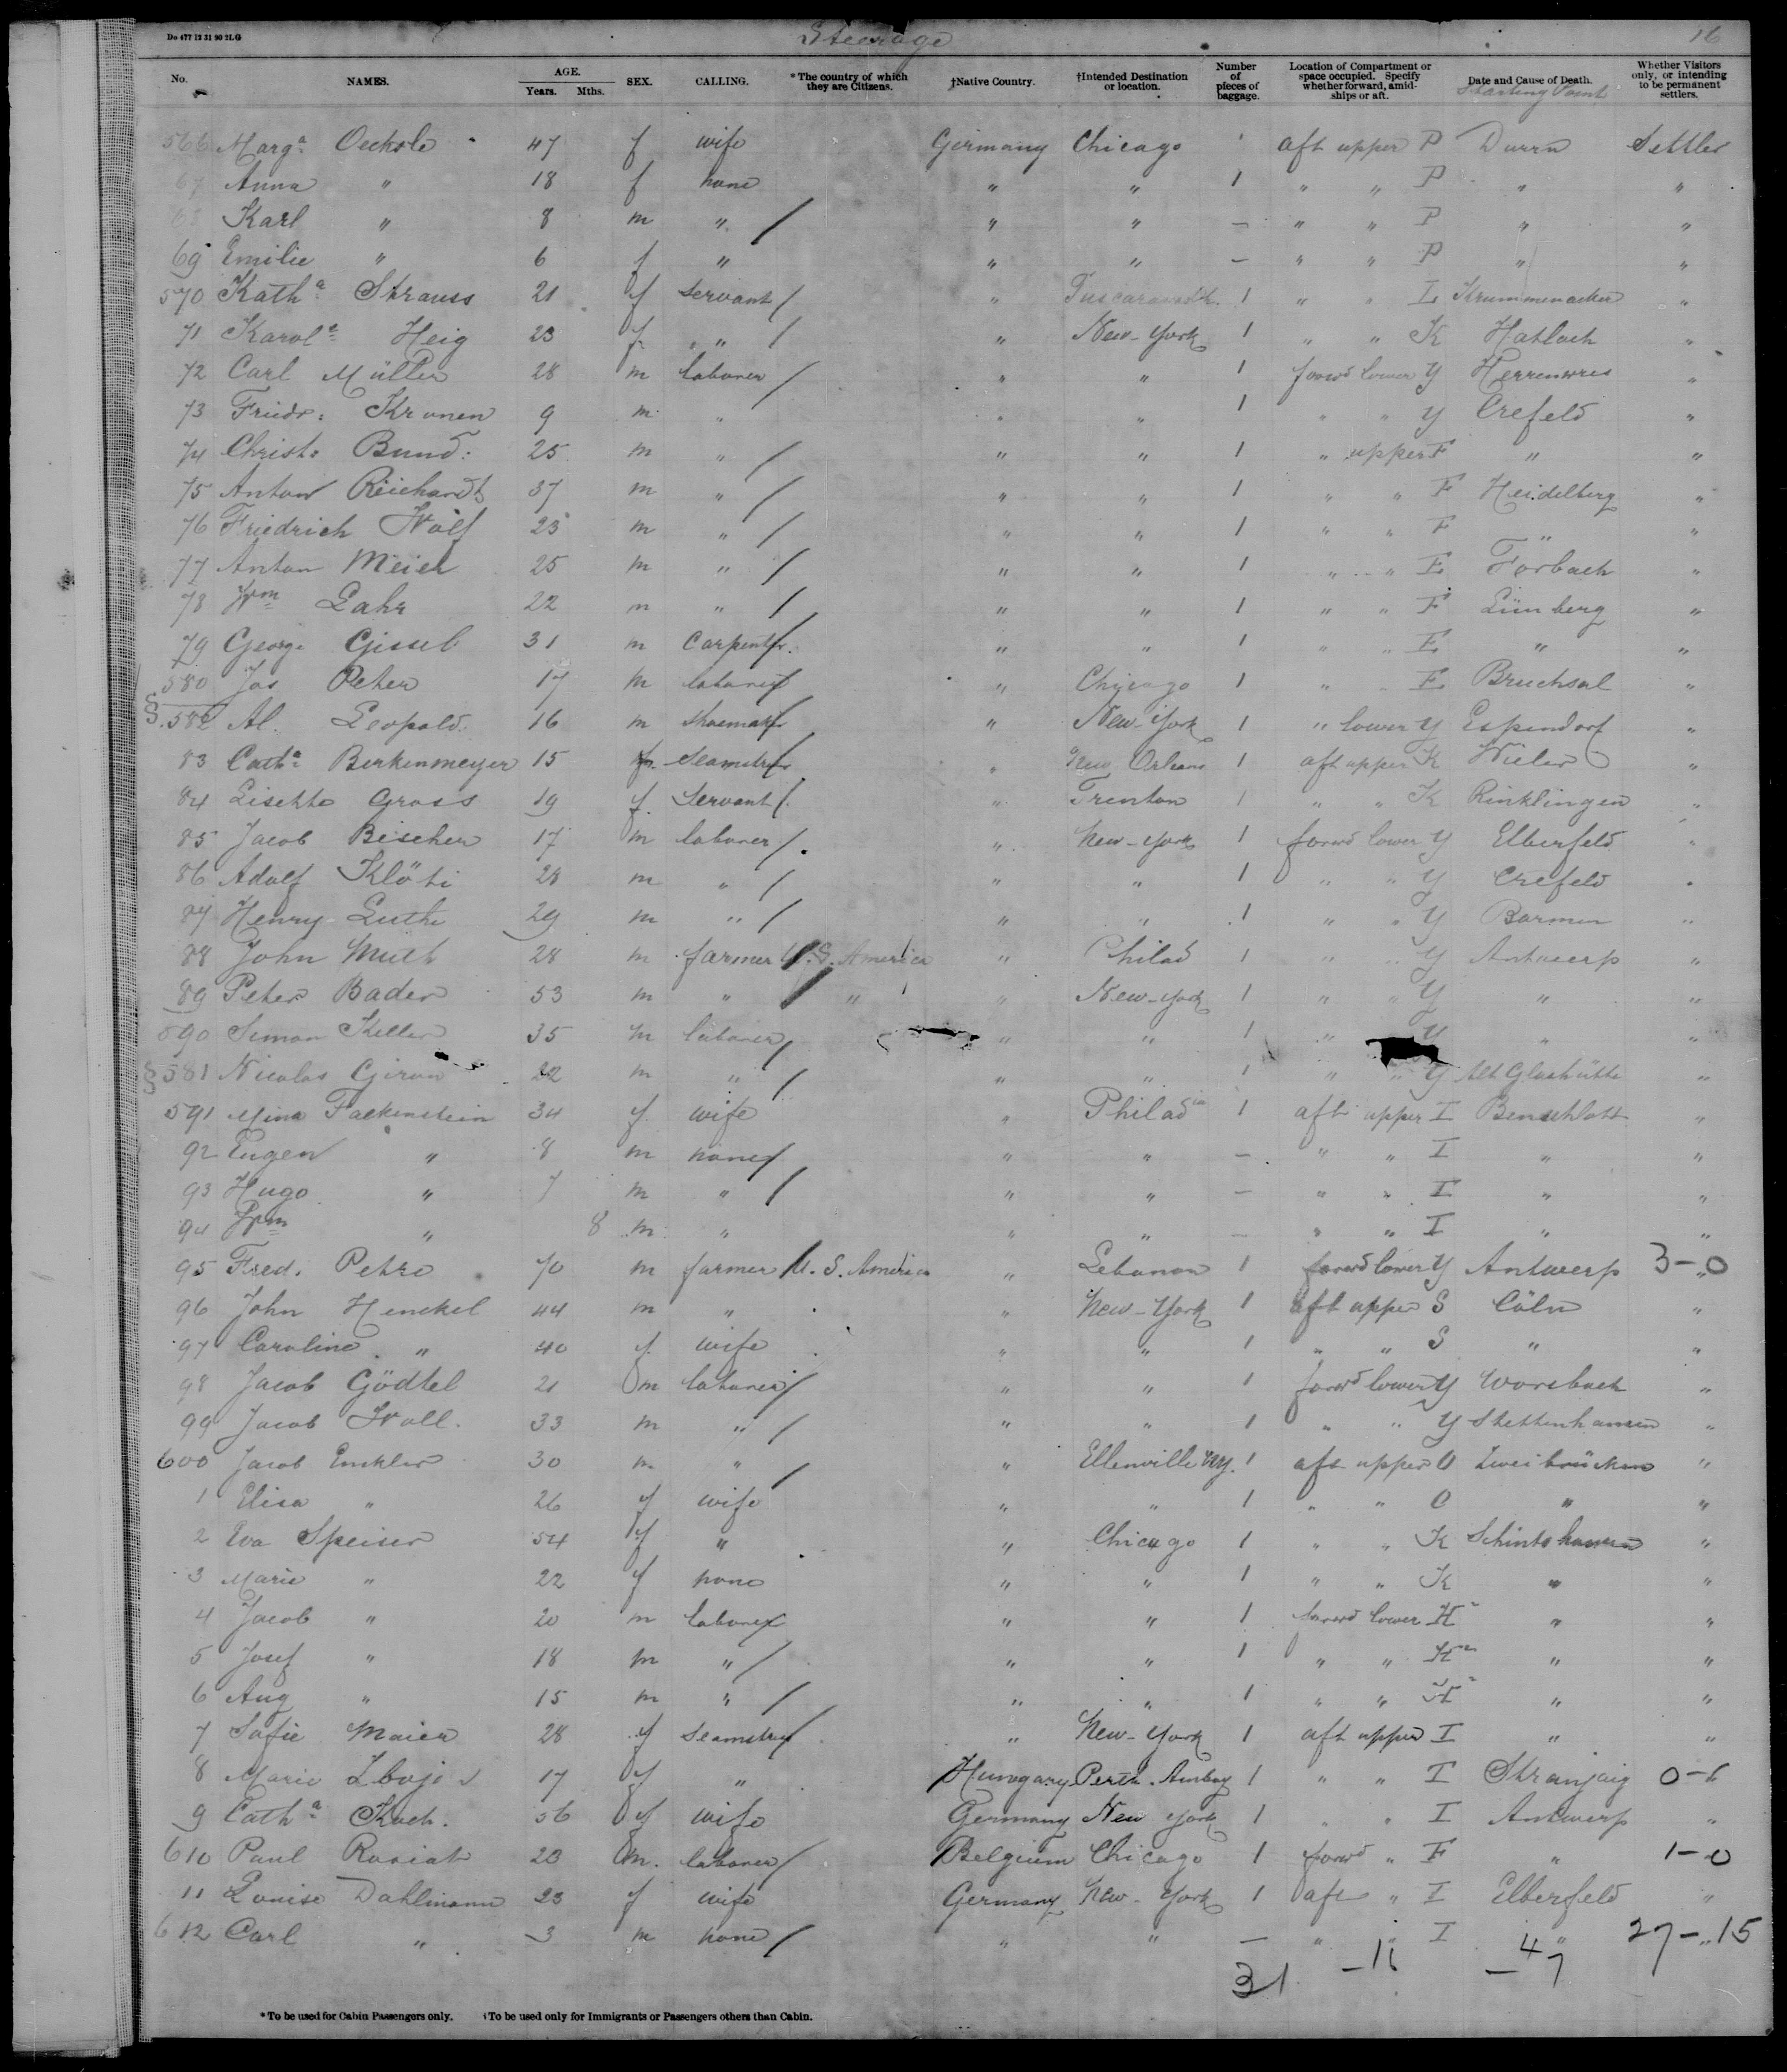 Do 477 12 31 90 2LG
Steerage 16
No. NAMES. AGE. Years. Mths. SEX. CALLING. *The country of which they are Citizens. †Native Country. †Intended Destination or location. Number of pieces of baggage. Location of Compartment or space occupied. Specify whether forward, amidships or aft. Date and Cause of Death. Starting Point Whether Visitors only, or intending to be permanent settlers.
566 Marga Oechsle 47 f wife Germany Chicago aft upper P Durrn Settler
67 Anna " 18 f none " " 1 " " P " "
68 Karl " 8 m " / " " – " " P " "
69 Emilie " 6 f " " " – " " P " "
570 Katha Strauss 21 f Servant / " 1 " " L Krummenacker "
71 Karola Heig 23 f " " / " New-York 1 " " K Haslach "
72 Carl Müller 28 m laborer / " " 1 forwd lower Y "
73 Friedr: Kronen 9 m " " " 1 " " Y Crefeld "
74 Christ: Bund: 25 m " / " " 1 " upper F " "
75 Anton Reichardt 37 m " / " " 1 " " F Heidelberg "
76 Friedrich Wolf 23 m " / " " 1 " " F " "
77 Anton Meier 25 m " / " " 1 " " E Forbach "
78 Wm Lahr 22 m " / " " 1 " " F Limberg "
79 George Gissel 31 m Carpenter / " " 1 " " E " "
580 Jos Peter 17 m laborer / " Chicago 1 " " E Bruchsal "
§ 582 Al. Leopold 16 m Shoemaker / " New-York 1 " lower Y Espendorf "
83 Catha Berkenmeyer 15 f. Seamstress / " New Orleans 1 aft upper K Wieler "
84 Lisette Gross 19 f. Servant / " Trenton 1 " " K Rinklingen "
85 Jacob Bischer 17 m laborer / " New-York 1 forwd lower Y Elberfeld "
86 Adolf Klöti 28 m " / " " 1 " " Y Crefeld "
87 Henry Luthe 29 m " / " " 1 " " Y Barmen "
88 John Muth 28 m farmer U.S. America " Philad 1 " " Y Antwerp "
89 Peter Bader 53 m " / " " New-York 1 " " Y " "
590 Simon Keller 35 m laborer / " " 1 " " Y " "
§ 581 Nicolas Giron 22 m " / " " 1 " " Y Alt Glashütte "
591 Mina Falkenstein 34 f. wife " Philadia 1 aft upper I "
92 Eugen " 8 m none / " " – " " I " "
93 Hugo " 7 m " / " " – " " I " "
94 Wm " 8 m " " " – " " I " "
95 Fred. Petre 70 m farmer / U.S. America " Lebanon 1 forwd lower Y Antwerp 3–0 "
96 John Henckel 44 m " " New-York 1 aft upper S Cöln "
97 Caroline " 40 f. wife " " 1 " " S " "
98 Jacob Gödtel 21 m laborer / " " 1 forwd lower Y Worsbach "
99 Jacob Woll. 33 m " / " " 1 " " Y Stettenhausen "
600 Jacob Emkler 30 m " / " Ellenville NY. 1 aft upper O Zweibrücken "
1 Elisa " 26 f wife " " 1 " " O " "
2 Eva Speiser 54 f " " Chicago 1 " " K "
3 Marie " 22 f none " " 1 " " K " "
4 Jacob " 20 m laborer / " " 1 forwd lower K " "
5 Josef " 18 m " / " " 1 " " K " "
6 Aug " 15 m " / " " 1 " " K " "
7 Sofie Maier 28 f Seamstress / " New-York 1 aft upper I " "
8 Marie 17 f " Hungary Perth-Amboy 1 " " I 0–6
9 Catha Koch. 56 f wife Germany New York 1 " " I Antwerp "
610 Paul Roriat 23 m. laborer / Belgium Chicago 1 forwd " F " 1–0
11 Louise Dahlmann 23 f wife Germany New-York 1 aft " I Elberfeld "
612 Carl " 3 m none / " " – " " I " 27–15
31 –16 –47
*To be used for Cabin Passengers only. †To be used only for Immigrants or Passengers others than Cabin.